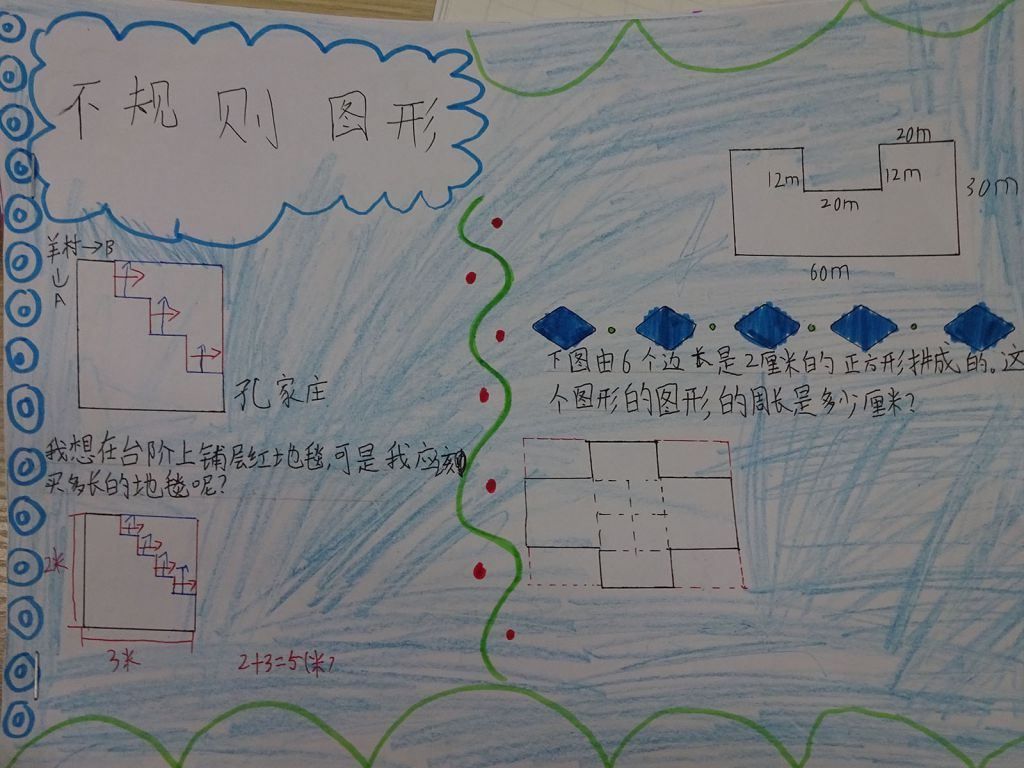 不规则图形
羊村→B
↓
A
孔家庄
我想在台阶上铺层红地毯,可是我应该
买多长的地毯呢?
2米
3米
2+3=5(米)
20m
12m
12m
30m
20m
60m
下图由6个边长是2厘米的正方形拼成的。这
个图形的图形,的周长是多少厘米?